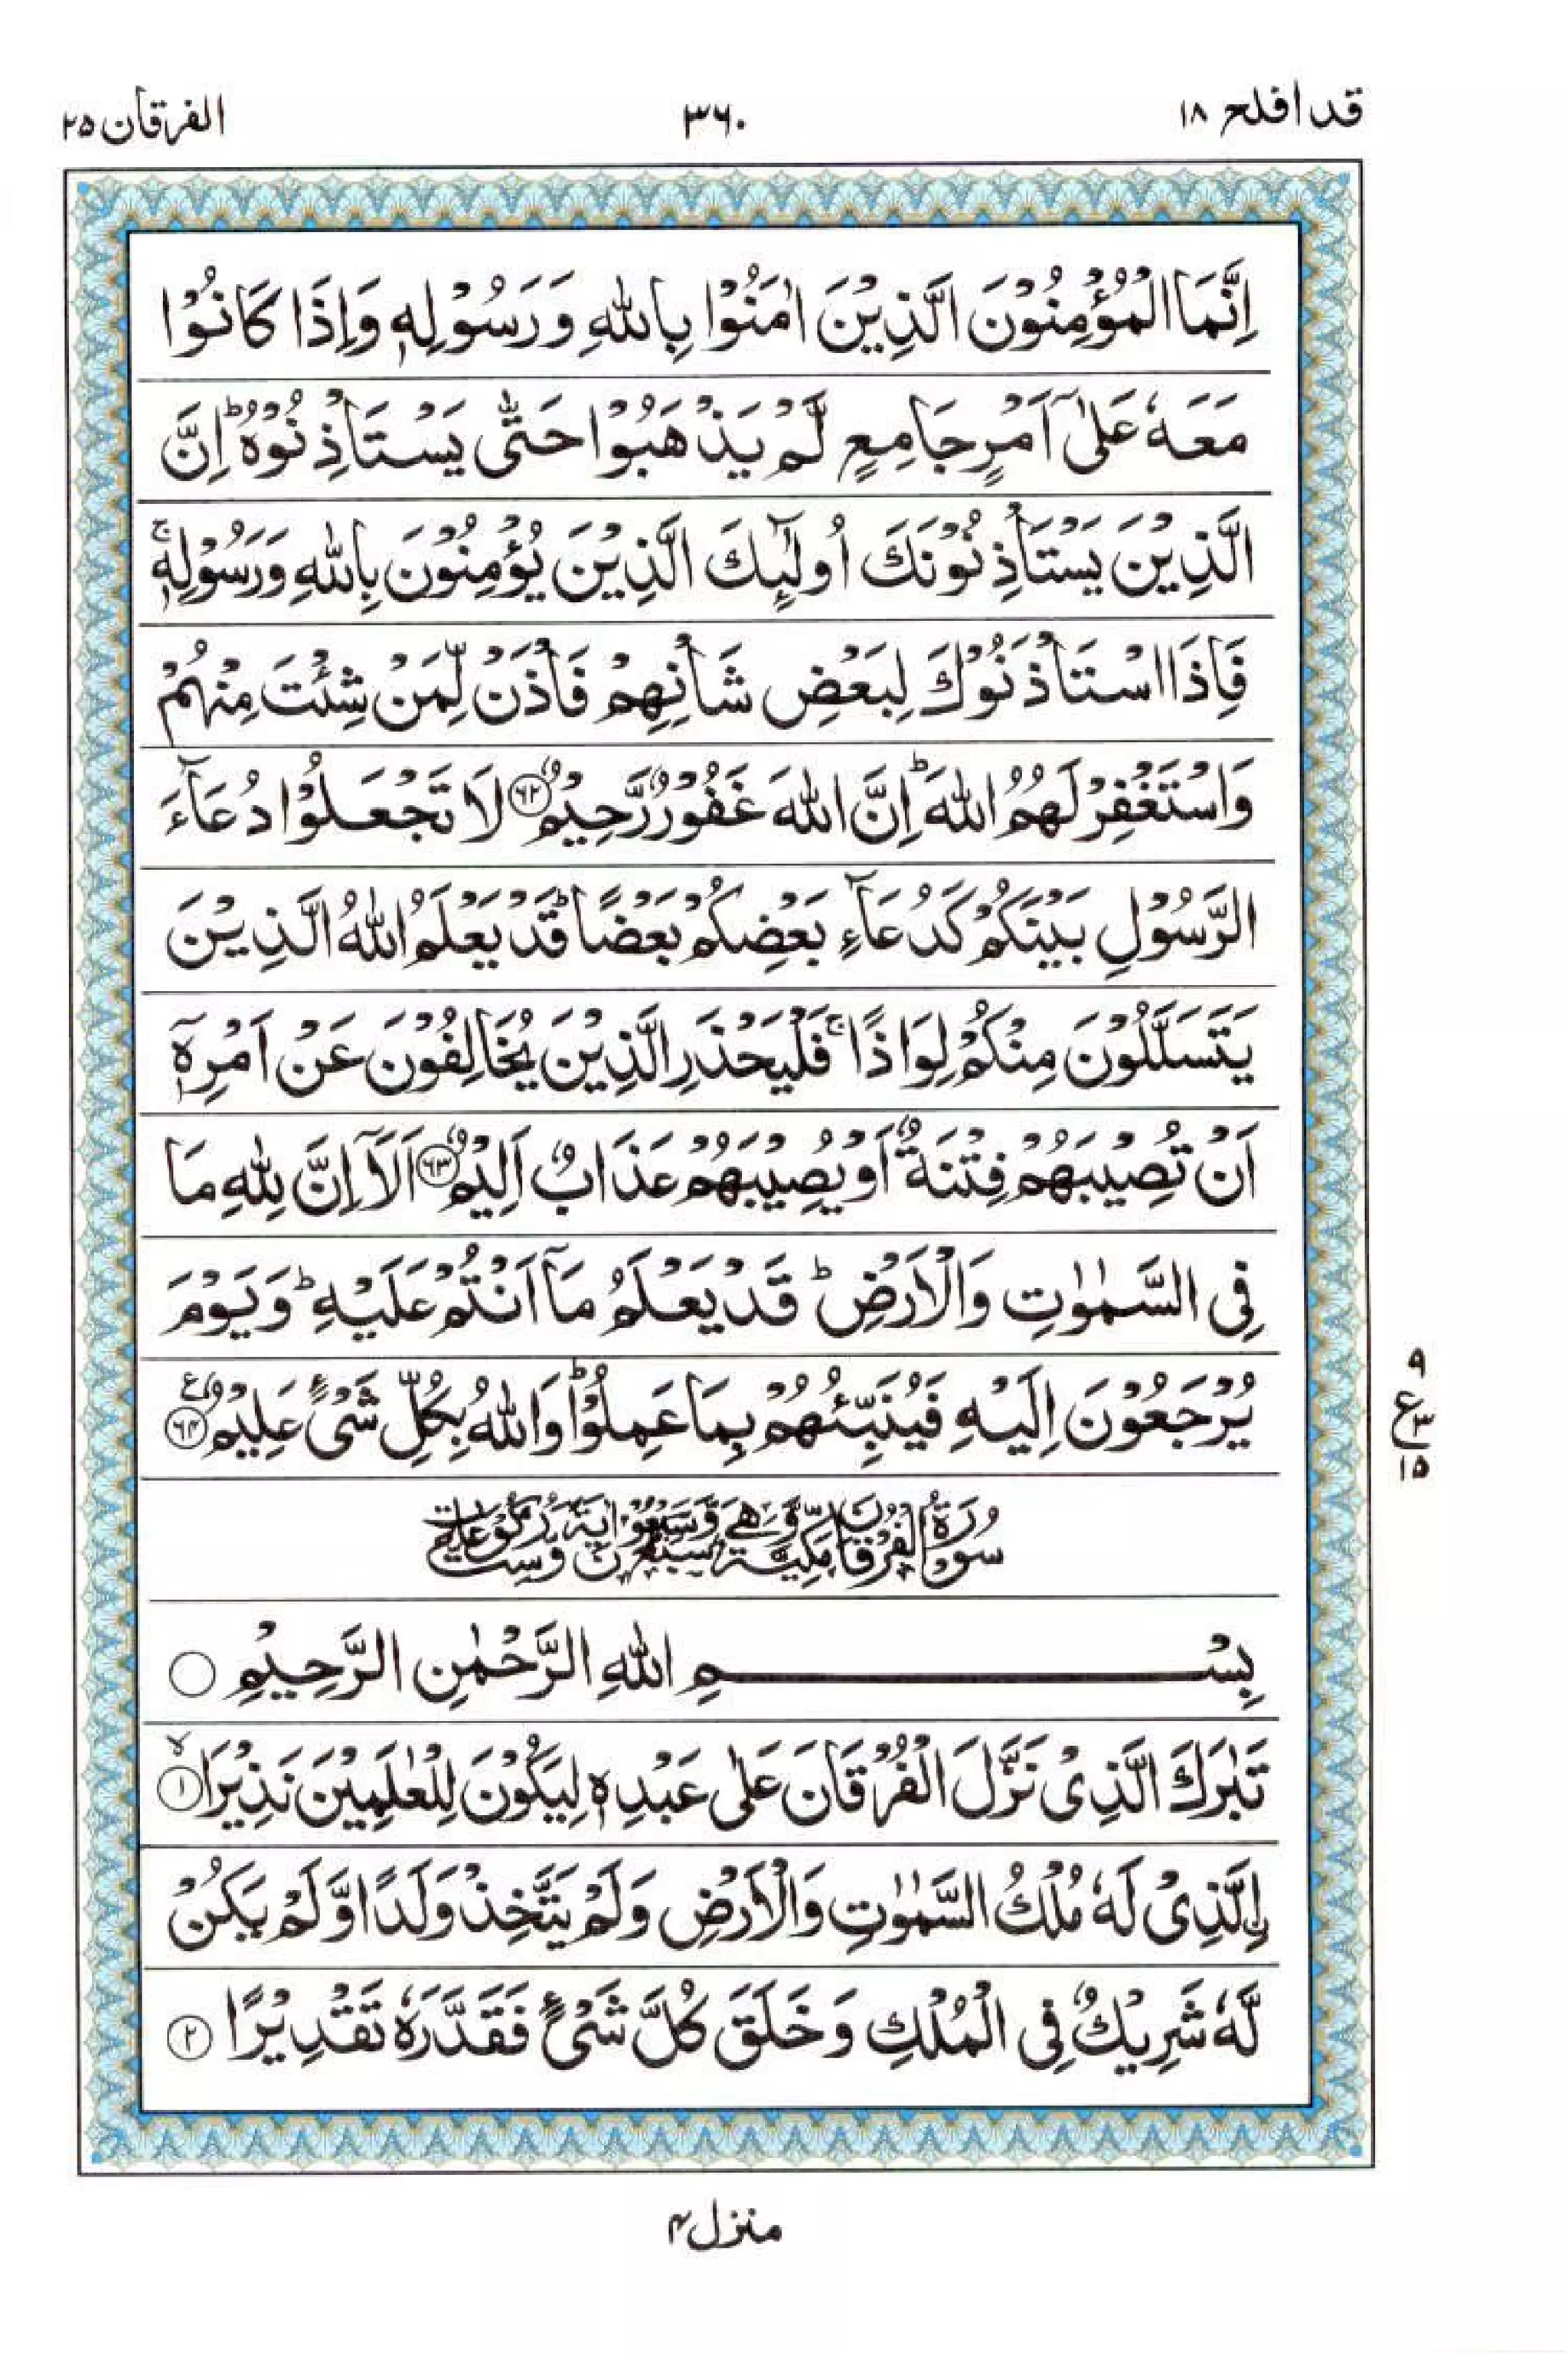 قد افلح ١٨
٣٦٠
الفرقان ٢٥
اِنَّمَا الْمُؤْمِنُوْنَ الَّذِيْنَ اٰمَنُوْا بِاللّٰهِ وَرَسُوْلِهٖ وَاِذَا كَانُوْا
مَعَهٗ عَلٰۤى اَمْرٍ جَامِعٍ لَّمْ يَذْهَبُوْا حَتّٰى يَسْتَاْذِنُوْهُ ؕ اِنَّ
الَّذِيْنَ يَسْتَاْذِنُوْنَكَ اُولٰٓئِكَ الَّذِيْنَ يُؤْمِنُوْنَ بِاللّٰهِ وَرَسُوْلِهٖ ۚ
فَاِذَا اسْتَاْذَنُوْكَ لِبَعْضِ شَاْنِهِمْ فَاْذَنْ لِّمَنْ شِئْتَ مِنْهُمْ
وَاسْتَغْفِرْ لَهُمُ اللّٰهَ ؕ اِنَّ اللّٰهَ غَفُوْرٌ رَّحِيْمٌ ﴿٦٢﴾ لَا تَجْعَلُوْا دُعَآءَ
الرَّسُوْلِ بَيْنَكُمْ كَدُعَآءِ بَعْضِكُمْ بَعْضًا ؕ قَدْ يَعْلَمُ اللّٰهُ الَّذِيْنَ
يَتَسَلَّلُوْنَ مِنْكُمْ لِوَاذًا ۚ فَلْيَحْذَرِ الَّذِيْنَ يُخَالِفُوْنَ عَنْ اَمْرِهٖۤ
اَنْ تُصِيْبَهُمْ فِتْنَةٌ اَوْ يُصِيْبَهُمْ عَذَابٌ اَلِيْمٌ ﴿٦٣﴾ اَلَاۤ اِنَّ لِلّٰهِ مَا
فِى السَّمٰوٰتِ وَالْاَرْضِ ؕ قَدْ يَعْلَمُ مَاۤ اَنْتُمْ عَلَيْهِ ؕ وَيَوْمَ
يُرْجَعُوْنَ اِلَيْهِ فَيُنَبِّئُهُمْ بِمَا عَمِلُوْا ؕ وَاللّٰهُ بِكُلِّ شَىْءٍ عَلِيْمٌ ﴿٦٤﴾ ع
٩
ع ٣
١٥
سُوْرَةُ الْفُرْقَانِ مَكِّيَّةٌ وَّهِىَ سَبْعٌ وَّسَبْعُوْنَ اٰيَةً وَّسِتُّ رُكُوْعَاتٍ
بِسْمِ اللّٰهِ الرَّحْمٰنِ الرَّحِيْمِ
تَبٰرَكَ الَّذِىْ نَزَّلَ الْفُرْقَانَ عَلٰى عَبْدِهٖ لِيَكُوْنَ لِلْعٰلَمِيْنَ نَذِيْرَا ۙ ﴿١﴾
اِلَّذِىْ لَهٗ مُلْكُ السَّمٰوٰتِ وَالْاَرْضِ وَلَمْ يَتَّخِذْ وَلَدًا وَّلَمْ يَكُنْ
لَّهٗ شَرِيْكٌ فِى الْمُلْكِ وَخَلَقَ كُلَّ شَىْءٍ فَقَدَّرَهٗ تَقْدِيْرًا ﴿٢﴾
منزل ٤